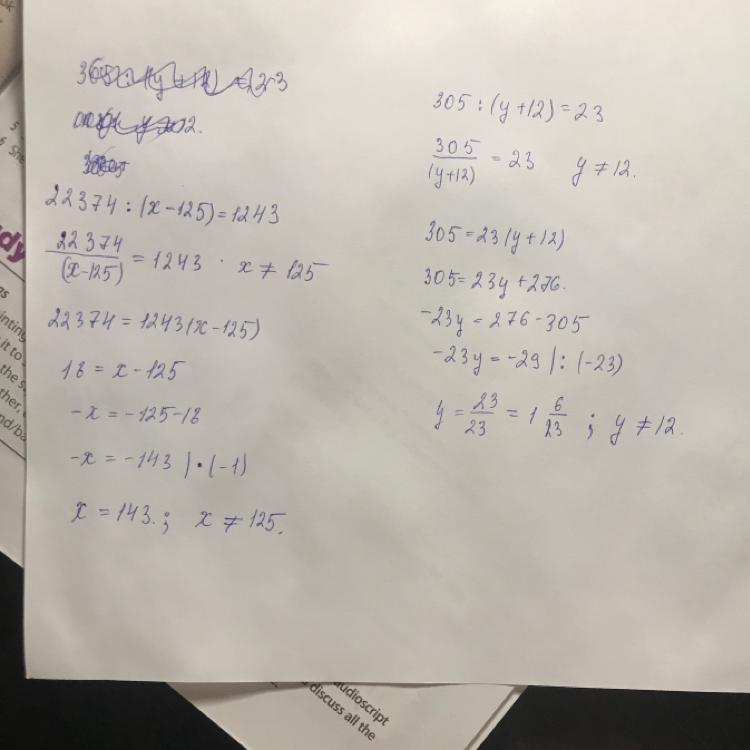 22374 : (x-125) = 1243
22374/(x-125) = 1243 · x ≠ 125
22374 = 1243(x-125)
18 = x - 125
-x = -125-18
-x = -143 |·(-1)
x = 143. ; x ≠ 125.
305 : (y+12) = 23
305/(y+12) = 23 y ≠ 12.
305 = 23(y+12)
305 = 23y + 276.
-23y = 276 - 305
-23y = -29 | : (-23)
y = 23/23 = 1 6/23 ; y ≠ 12.
dy
as
it to
the s
ther,
nd/ba
audioscript
discuss all the